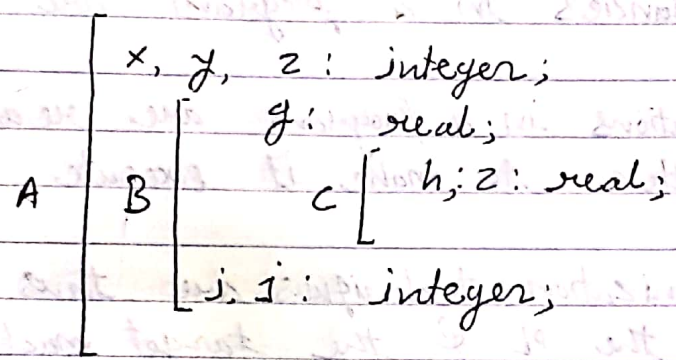 x, y, z : integer;
g : real;
A B C h, z : real;
i, j : integer;